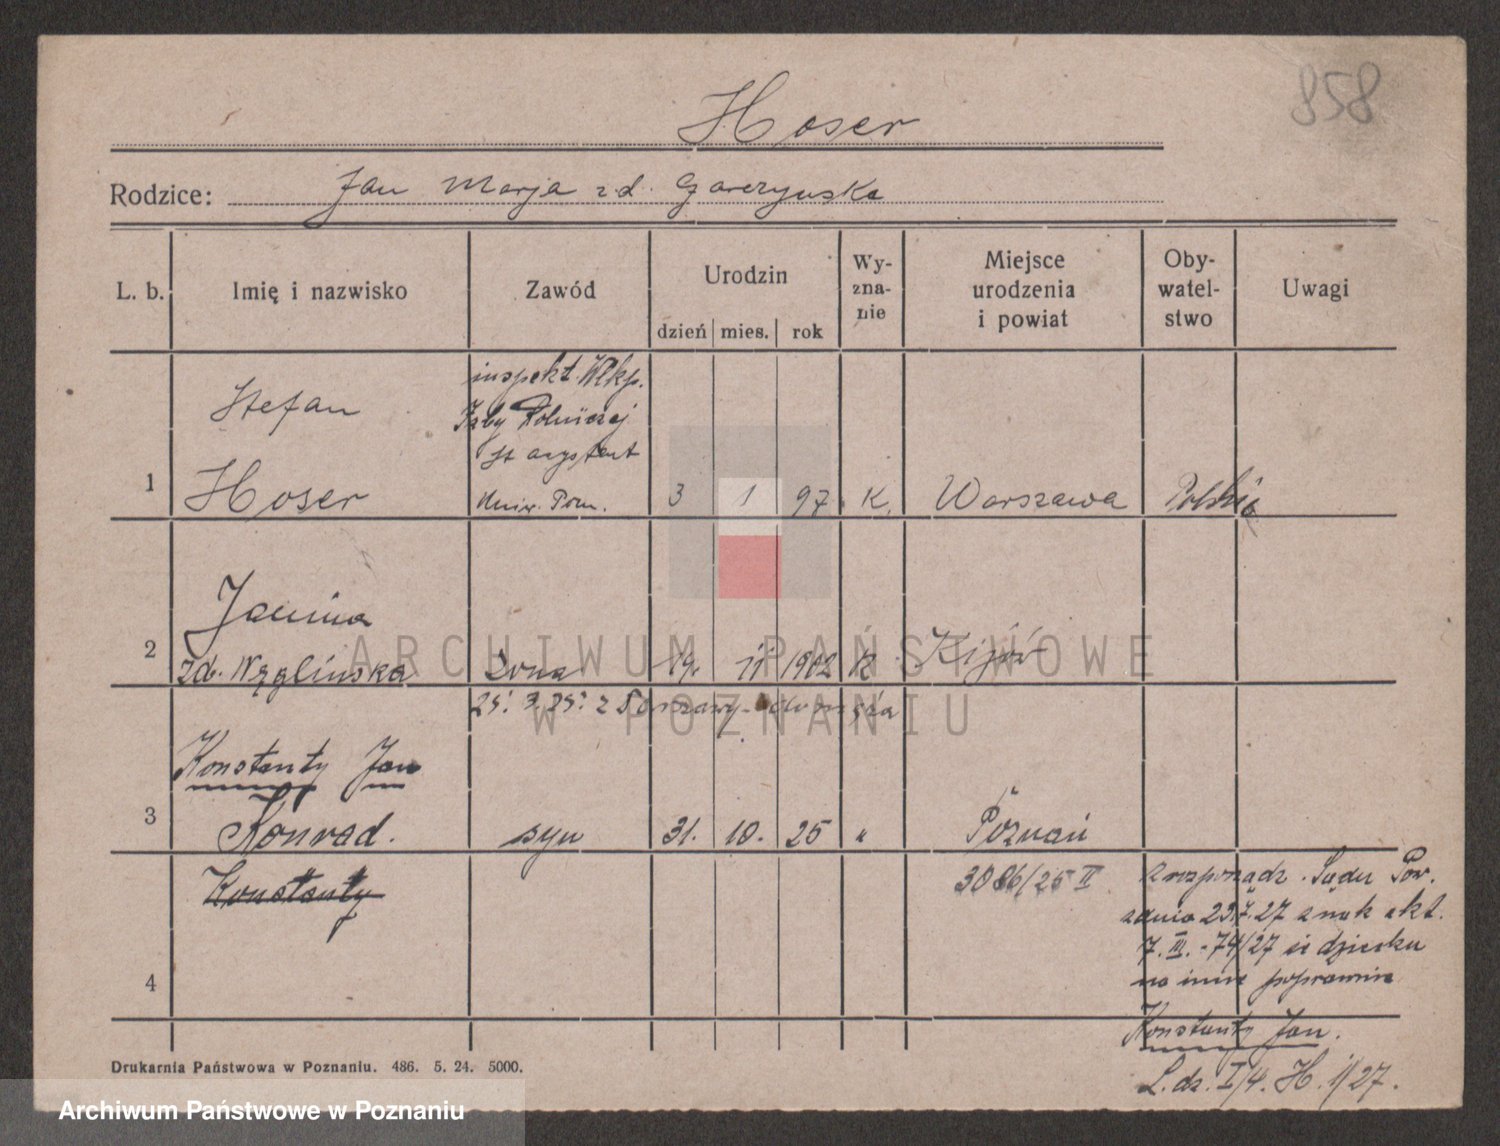 858
Hoser
Rodzice: Jan Marja zd. Garczyńska
L. b.
Imię i nazwisko
Zawód
Urodzin
dzień mies. rok
Wy-
zna-
nie
Miejsce
urodzenia
i powiat
Oby-
watel-
stwo
Uwagi
inspekt. Wlkp.
Stefan Izby Rolniczej
st asystent
1 Hoser Uniw. Pozn. 3 1 97 K. Warszawa Polskie
Janina
2 zd. Węglińska żona 19. 11 1902 K Kijów
25. 3. 25. z Warszawy - do męża
Konstanty Jan
3 Konrad. syn 31. 10. 25 " Poznań
Konstanty 3086/25 II
z rozporządz. Sądu Pow.
z dnia 23.7.27 znak akt.
7. III. - 74/27 dziecku
na imię poprawnie
4
Konstanty Jan.
L. dz. I/4. H. 1/27.
Drukarnia Państwowa w Poznaniu. 486. 5. 24. 5000.
ARCHIWUM PAŃSTWOWE
W POZNANIU
Archiwum Państwowe w Poznaniu